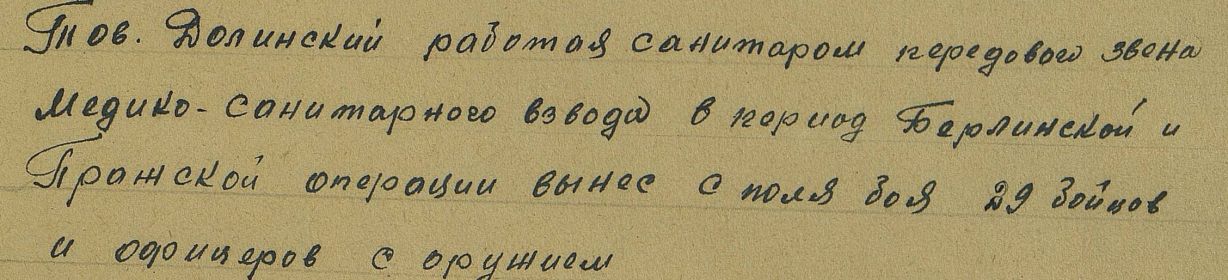 Тов. Долинский работая санитаром передового звена
Медико-санитарного взвода в период Берлинской и
Пражской операции вынес с поля боя 29 бойцов
и офицеров с оружием